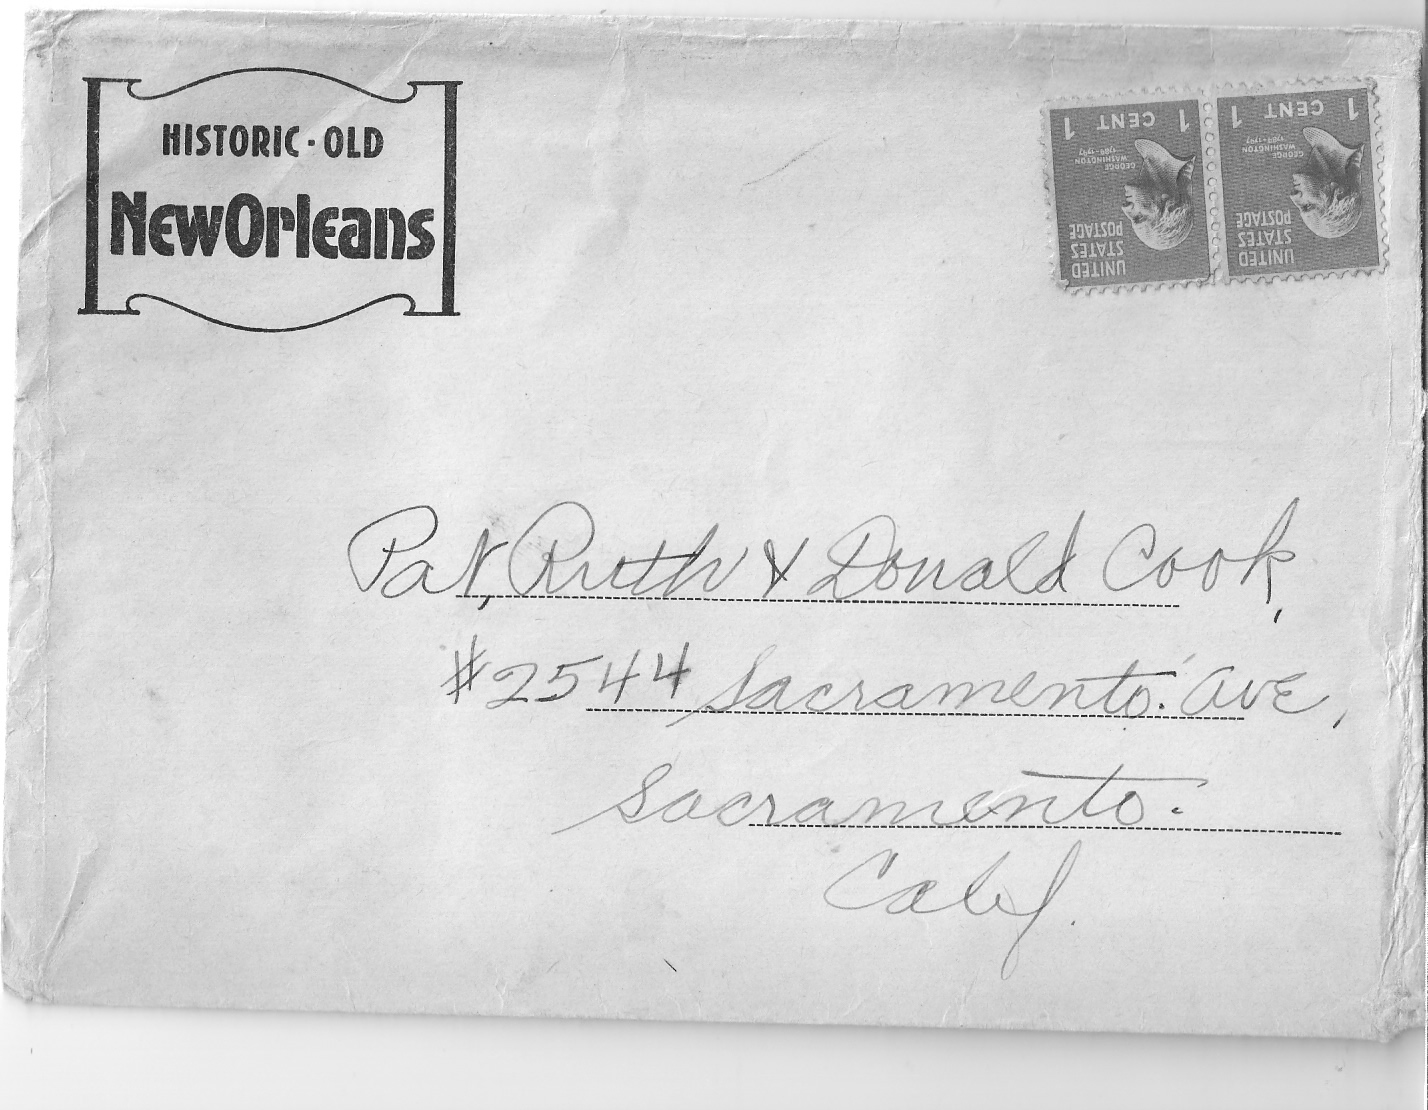 HISTORIC · OLD
NEW ORLEANS
1 CENT 1
GEORGE
WASHINGTON
1789-1797
UNITED
STATES
POSTAGE
1 CENT 1
GEORGE
WASHINGTON
1789-1797
UNITED
STATES
POSTAGE
Pat, Ruth & Donald Cook,
#2544 Sacramento. Ave,
Sacramento.
Calif.